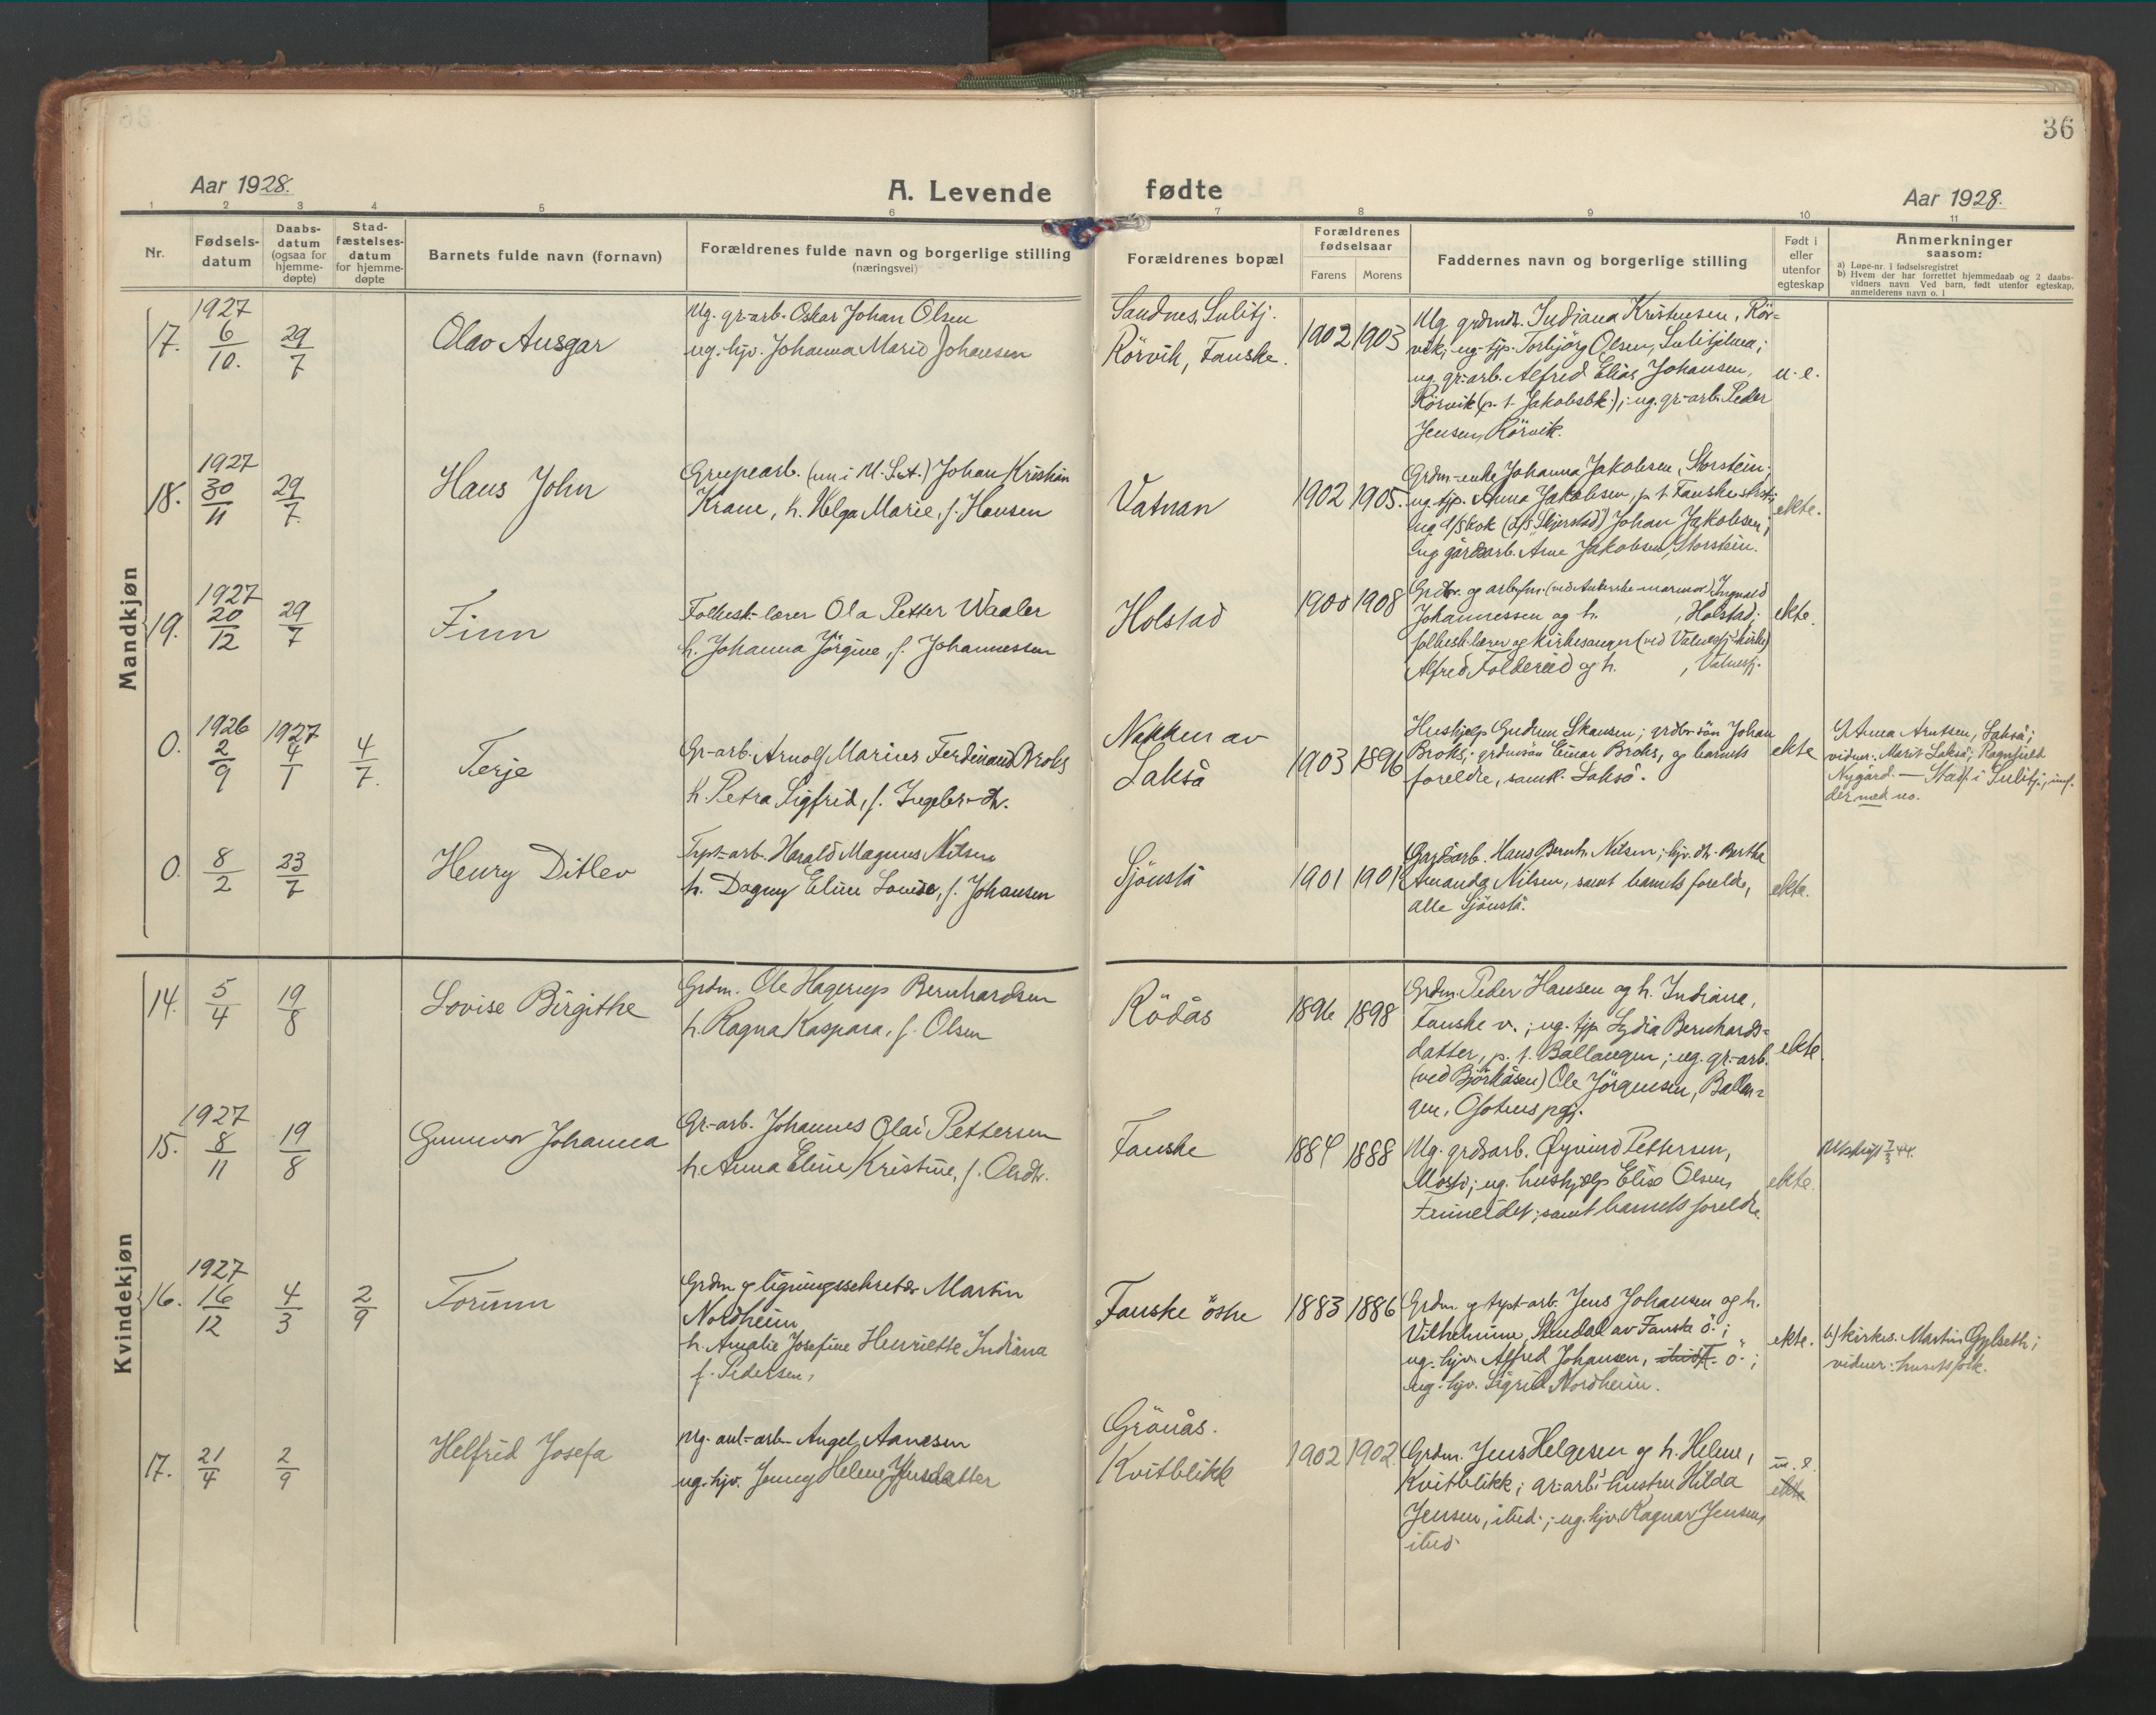 36
Aar 1928.
A. Levende fødte
Aar 1928.
1 2 3 4 5 6 7 8 9 10 11
Nr.
Fødsels-
datum
Daabs-
datum
(ogsaa for
hjemme-
døpte)
Stad-
fæstelses-
datum
for hjemme-
døpte
Barnets fulde navn (fornavn)
Forældrenes fulde navn og borgerlige stilling
(næringsvei)
Forældrenes bopæl
Forældrenes
fødselsaar
Farens Morens
Faddernes navn og borgerlige stilling
Født i
eller
utenfor
egteskap
Anmerkninger
saasom:
a) Løpe-nr. i fødselsregistret
b) Hvem der har forrettet hjemmedaab og 2 daabs-
vidners navn. Ved barn, født utenfor egteskap,
anmelderens navn o. l
Mandkjøn
17.
1927
6/10.
29/7
Olav Ansgar
Ug. gr-arb. Oskar Johan Olsen
ug. hjv. Johanna Marie Johansen
Sandnes, Sulitj.
Rörvik, Fauske.
1902 1903
Ug grdmdr. Indiana Kristensen, Rör-
vik; ug. tjp. Torbjörg Olsen, Sulitjelma;
ug. gr-arb. Alfred Elias Johansen,
Rörvik (p. t. Jakobsbk.); ug. gr-arb. Peder
Jensen, Rörvik.
u. e.
18.
1927
30/11
29/7.
Hans John
Grupearb. (nu i U.S.A.) Johan Kristian
Krane, h. Helga Marie, f. Hansen
Vatnan
1902 1905.
Grdm-enke Johanna Jakobsen, Storstein;
ug. tjp. Anna Jakobsen, p. t. Fauske
ug. d/s kok (d/s "Skjerstad") Johan Jakobsen;
ug. gårdsarb. Arne Jakobsen, Storstein.
ekte.
19.
1927
20/12
29/7
Finn
Folkesk-lærer Ola Petter Waaler
h. Johanna Jörgine, f. Johannessen
Holstad
1900 1908
Grdbr. og arb.fm. (ved Ankerske marmor) Ingvald
Johannessen og h. , Holstad;
folkesk-lærer og kirkesanger (ved Valnesfj. kirke)
Alfred Foldereid og h. , Valnesfj.
ekte.
0.
1926
2/9
1927
4/1
4/7.
Terje
Gr-arb. Arnolf Marius Ferdinand Broks
h. Petra Sigfrid, f. Ingebr-dtr.
Nakken av
Lakså
1903 1896
Hushjelp Gudrun Skansen; grdbr-sön Johan
Broks; grdmsön Einar Broks, og barnets
foreldre, samtl. Lakså.
ekte
Anna Arntsen, Lakså;
vidner: Marit Lakså; Ragnhild
Nygård. — Stadf. i Sulitj., innf.
der med no.
0.
8/2
23/7
Henry Ditlev
Harald Magnus Nilsen
h. Dagny Eline Lovise, f. Johansen
Sjönstå
1901 1901
Gardsarb. Hans Bernh. Nilsen; hjv. dtr. Bertha
Amanda Nilsen, samt barnets foreldre,
alle Sjönstå.
ekte.
Kvindekjøn
14.
5/4
19/8
Lovise Birgithe
Grdm. Ole Hagerup Bernhardsen
h. Ragna Kaspara, f. Olsen
Rödås
1896 1898
Grdm. Peder Hansen og h. Indiana,
Fauske v.; ug. tjp Lydia Bernhards-
datter, p. t. Ballangen; ug. gr-arb.
(ved Björkåsen) Ole Jörgensen, Ballan-
gen, Ofotens pgj.
ekte.
15.
1927
8/11
19/8
Gunnvor Johanna
Gr-arb. Johannes Olai Pettersen
h. Anna Eline Kristine, f. Olsdtr.
Fauske
1884 1888
Ug. grdsarb. Øyvind Pettersen,
Mosti; ug. hushjælp Elise Olsen,
Finneidet; samt barnets foreldre
ekte.
Utskrift 7/3 44.
16.
1927
16/12
4/3
2/9
Torunn
Grdm. og ligningssekretær Martin
Nordheim
h. Amalie Josefine Henriette Indiana
f. Pedersen,
Fauske östre
1883 1886
Grdm. og Jens Johansen og h.
Vilhelmine, Stendal av Fauske ö.;
ug. hjv. Alfred Johansen, F. ö.;
ug. hjv. Sigrid Nordheim.
ekte.
b) kirkes. Martin Gylseth;
vidner: husets folk.
17.
21/4
2/9
Helfrid Josefa
Ug. anl-arb. Angel Aanesen
ug. hjv. Jenny Helene Jensdatter
Grönås.
Kvitblikk
1902 1902.
Grdm. Jens Helgesen og h. Helene,
Kvitblikk; gr-arb.s hustru Hilda
Jensen, ibid.; ug. hjv. Ragnar Jensen,
ibid.
u. e.
ekte